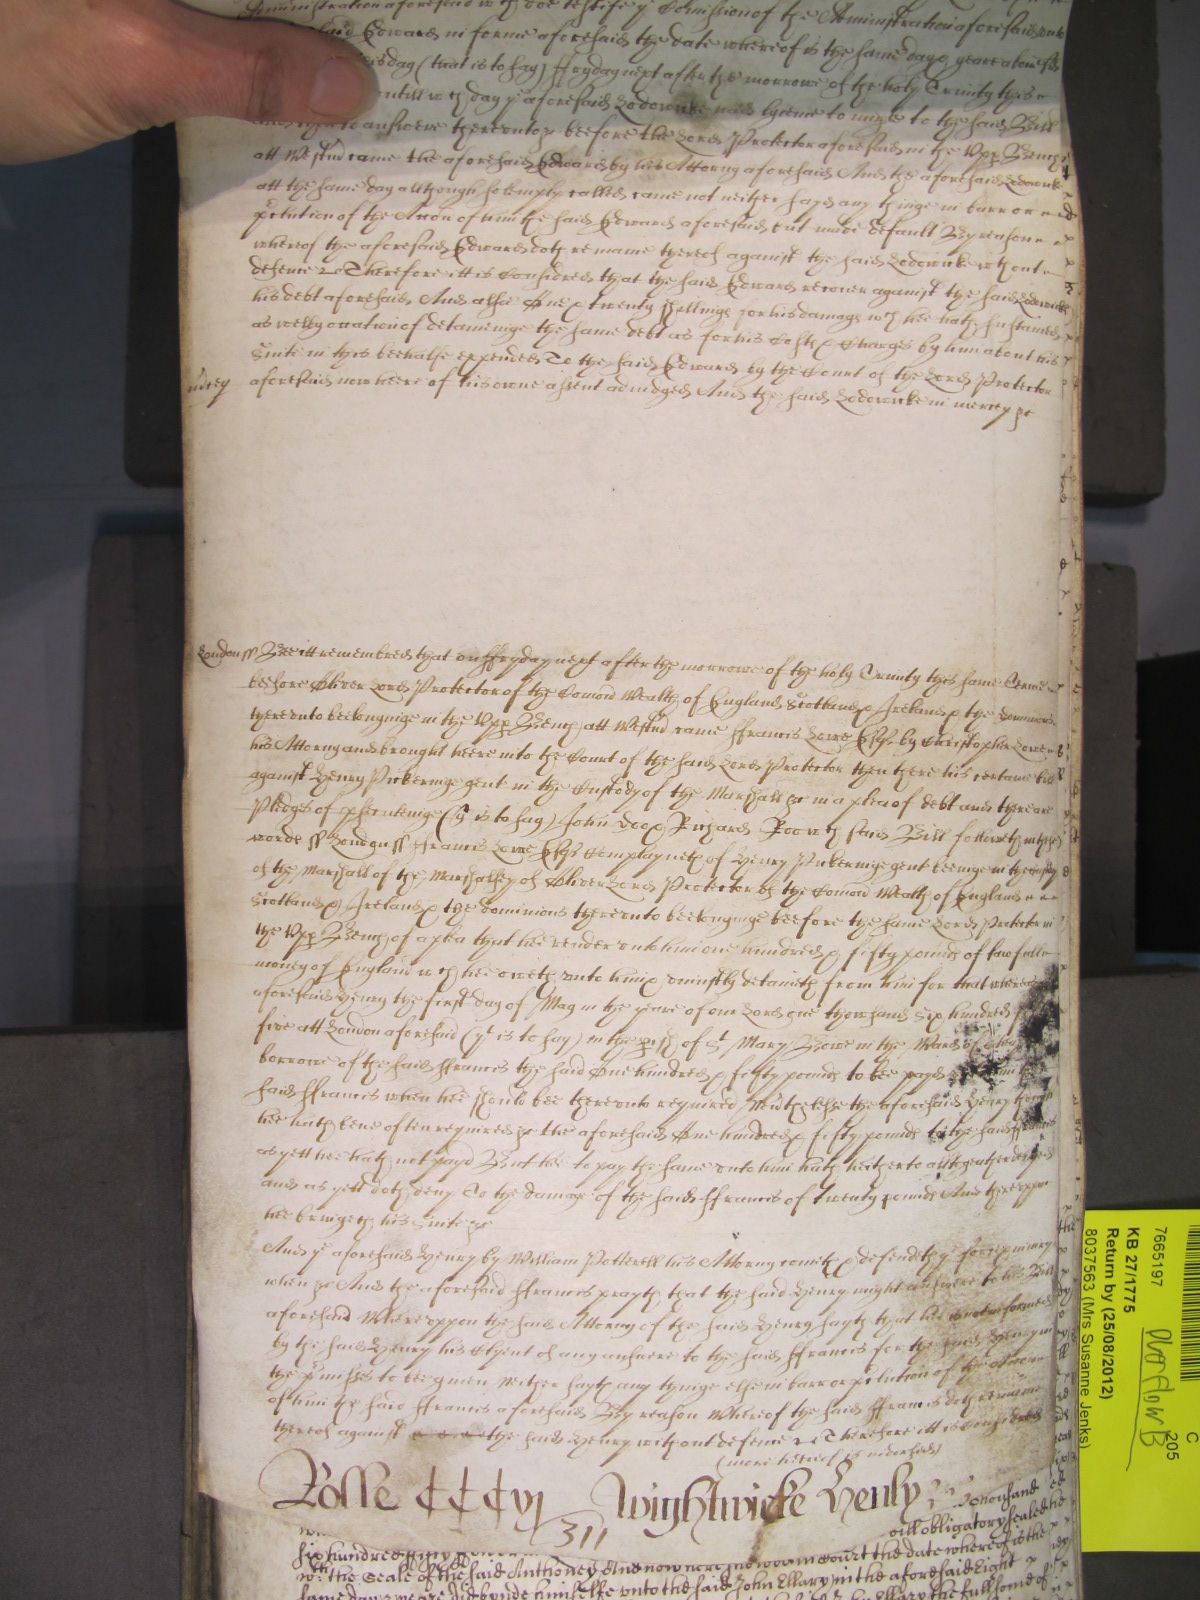 Administration aforesaid wch doe testifye ye Comission of the Administration aforesaid
said Edward in forme aforesaid the date whereof is the same day & yeare
this day (that is to say) ffryday next after the morrowe of the holy Trinity this
untill wch day ye aforesaid Lodowicke had lycence to imple to the said Bill
and then to answere thereunto &c beefore the Lord Protector aforesaid in the Vpp Bench
att Westmr came the aforesaid Edward by his Attorny aforesaid And the aforesaid Lodowicke
att the same day although solemply called came not neither sayd any thinge in barr or
pclution of the Accon of him the said Edward aforesaid but made default By reason
whereof the aforesaid Edward doth remaine thereof against the said Lodowicke wthout
defence &c Therefore itt is Considred that the said Edward recover against the said Lodowicke
his debt aforesaid And alsoe One & twenty shillings for his damage wch hee hath sustained
as well by occation of detaineinge the same debt as for his Costs & Charges by him about his
Suite in this beehalfe expended To the said Edward by the Court of the Lord Protector
aforesaid now heere of his owne assent adiudged And the said Lodowicke in mercy &c
mercy
London ss Bee itt remembred that on ffryday next after the morrowe of the holy Trinity this same Terme
before Oliver Lord Protector of the Comon Wealth of England Scotland & Ireland & the Dominions
thereunto beelonginge in the Vpp Bench att Westmr came ffrancis Lowe Esqr by Christopher Lowe
his Attorny and brought heere into the Court of the said Lord Protector then there his certaine bill
against Henry Pickeringe gent in the Custody of the Marshall &c in a plea of debt and there are
Pledges of psecuteinge (yt is to say) John Doo & Richard Roo wch said Bill followeth in these
words ss London ss ffrancis Lowe Esqr Complayneth of Henry Pickeringe gent beeinge in the Custody
of the Marshall of the Marshalsey of Oliver Lord Protector of the Comon Wealth of England
Scotland & Ireland & the Dominions thereunto beelonginge beefore the same Lord Protector in
the Vpp Bench of a plea that hee render unto him one hundred & fifty pounds of lawfull
money of England wch hee oweth unto him & uniustly detaineth from him for that whereas
aforesaid Henry the first day of May in the yeare of our Lord one thowsand six hundred
five att London aforesaid (yt is to say) in the pish of St Mary Bowe in the Ward of
borrowe of the said ffrancis the said One hundred & fifty pounds to bee payd
said ffrancis when hee should bee thereunto required Neverthelesse the aforesaid Henry though
hee hath bene often required &c the aforesaid One hundred & fifty pounds to the said ffrancis
as yett hee hath not payd But hee to pay the same unto him hath hitherto altogeather denyed
and as yett doth deny To the damage of the said ffrancis of twenty pounds And thereuppon
hee bringeth his Suite &c
And ye aforesaid Henry by William Potterell his Attorny cometh & defendeth ye force & iniury
when &c And the aforesaid ffrancis prayth that the said Henry might answere to his Bill
aforesaid Whereuppon the said Attorny of the said Henry sayth that hee is not informed
by the said Henry his Clyent of any answere to the said ffrancis for the said Henry in
the pmisses to bee given neither sayth any thinge else in barr or pclution of the Accon
of him the said ffrancis aforesaid By reason Whereof the said ffrancis doth remaine
thereof against the said Henry without defence &c Therefore itt is Considered
(more hereof is indorsed)
Rolle ccc xj Wightwicke Henly
311
thousand
bill obligatory sealed
six hundred fifty
wth the Seale of the said Anthoney And now here showen in court the date whereof is the
same day & yeare did bynde himselfe unto the said John Ellary in the aforesaid Eight
John Ellary the full some of
7665197
KB 27/1775
Return by (25/08/2012)
8037563 (Mrs Susanne Jenks)
C
205
Overflow B